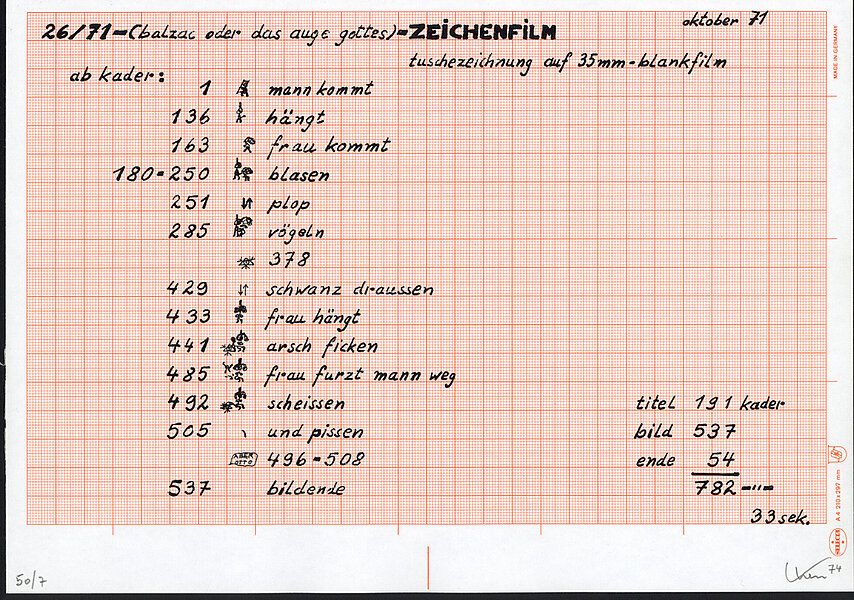 26/71-(balzac oder das auge gottes)-ZEICHENFILM
oktober 71
tuschezeichnung auf 35mm-blankfilm
ab kader:
1 mann kommt
136 hängt
163 frau kommt
180-250 blasen
251 plop
285 vögeln
378
429 schwanz draussen
433 frau hängt
441 arsch ficken
485 frau furzt mann weg
492 scheissen
505 und pissen
ABER OTTO 496-508
537 bildende
titel 191 kader
bild 537
ende 54
782 -"-
33 sek.
MADE IN GERMANY
A 4 210 x 297 mm
50/7
74